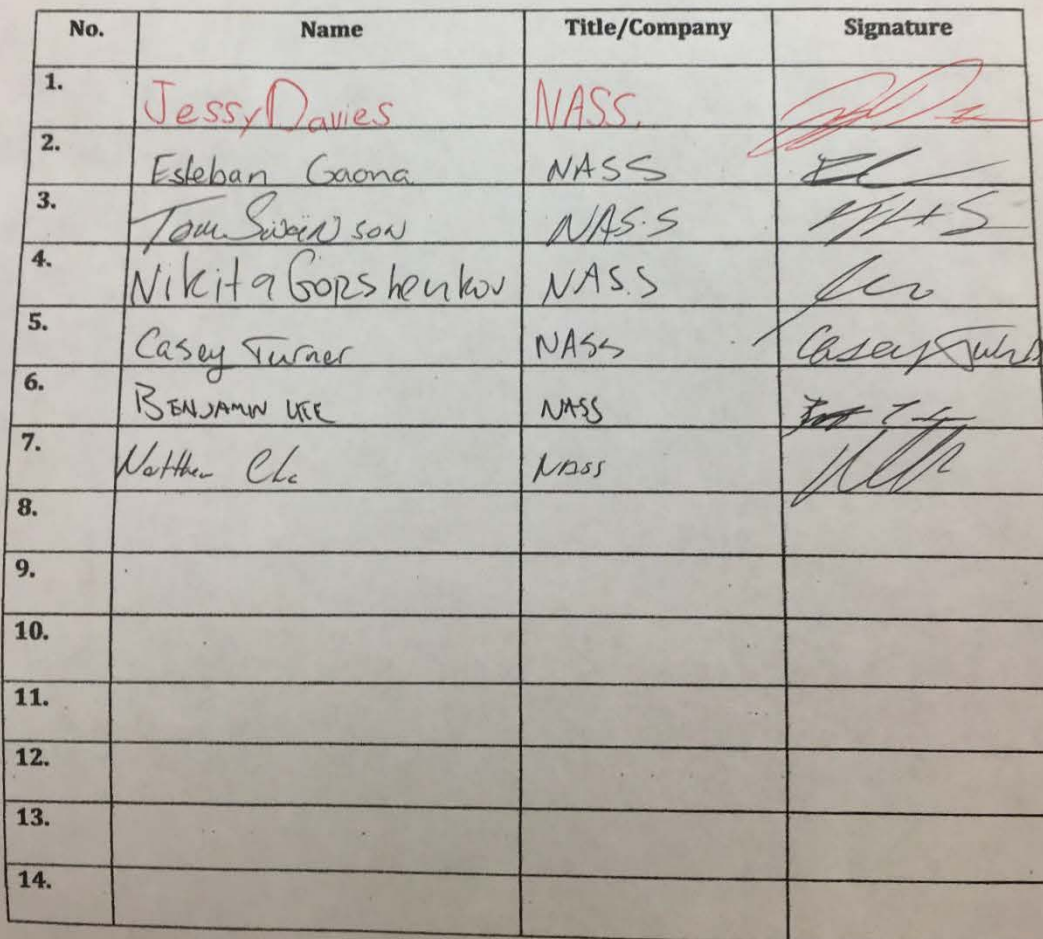 No. Name Title/Company Signature
1. Jessy Davies NASS.
2. Esteban Gaona NASS
3. Tom Swainson NAS.S
4. Nikita Gorshenkov NAS.S
5. Casey Turner NASS Casey Turner
6. BENJAMIN LEE NASS
7. NASS
8.
9.
10.
11.
12.
13.
14.